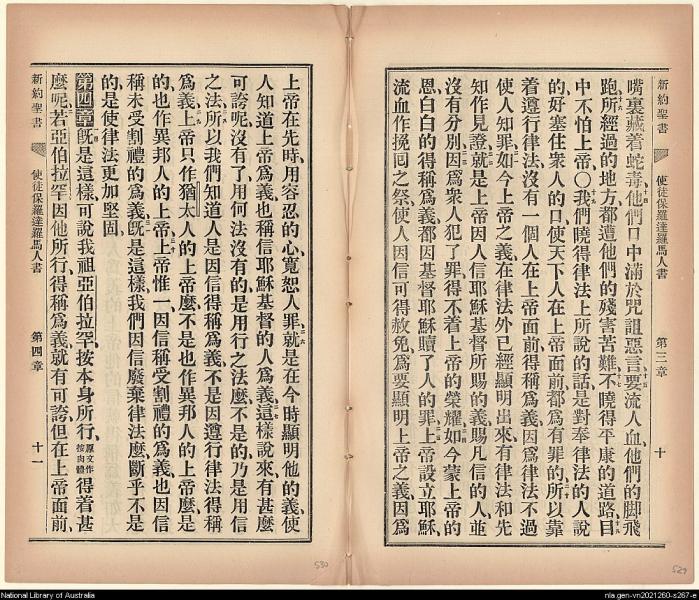 新約聖書
使徒保羅達羅馬人書
第三章
十
嘴裏藏着蛇毒他們口中滿於咒詛惡言要流人血他們的脚飛
跑所經過的地方都遭他們的殘害苦難不曉得平康的道路目
中不怕上帝〇我們曉得律法上所說的話是對奉律法的人說
的好塞住衆人的口使天下人在上帝面前都爲有罪的所以靠
着遵行律法沒有一個人在上帝面前得稱爲義因爲律法不過
使人知罪如今上帝之義在律法外已經顯明出來有律法和先
知作見證就是上帝因人信耶穌基督所賜的義賜凡信的人並
沒有分別因爲衆人犯了罪得不着上帝的榮耀如今蒙上帝的
恩白白的得稱爲義都因基督耶穌贖了人的罪上帝設立耶穌
流血作挽囘之祭使人因信可得赦免爲要顯明上帝之義因爲
上帝在先時用容忍的心寬恕人罪就是在今時顯明他的義使
人知道上帝爲義也稱信耶穌基督的人爲義這樣說來有甚麼
可誇呢沒有了用何法沒有的是用行之法麼不是的乃是用信
之法所以我們知道人是因信得稱爲義不是因遵行律法得稱
爲義上帝只作猶太人的上帝麼不是也作異邦人的上帝麼是
的也作異邦人的上帝上帝惟一因信稱受割禮的爲義也因信
稱未受割禮的爲義旣是這樣我們因信廢棄律法麼斷乎不是
的是使律法更加堅固
第四章旣是這樣可說我祖亞伯拉罕按本身所行原文作按肉體得着甚
麼呢若亞伯拉罕因他所行得稱爲義就有可誇但在上帝面前
新約聖書
使徒保羅達羅馬人書
第四章
十一
530
529
National Library of Australia
nla.gen-vn2021260-s267-e